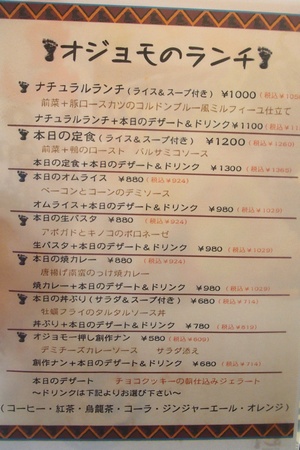 オジョモのランチ
ナチュラルランチ(ライス&スープ付き) ¥1000
前菜+豚ロースカツのコルドンブルー風ミルフィーユ仕立て
ナチュラルランチ+本日のデザート&ドリンク¥1100
本日の定食(ライス&スープ付き) ¥1200(税込¥1260)
前菜+鴨のロースト バルサミコソース
本日の定食+本日のデザート&ドリンク ¥1300(税込¥1365)
本日のオムライス ¥880(税込¥924)
ベーコンとコーンのデミソース
オムライス+本日のデザート&ドリンク ¥980(税込¥1029)
本日の生パスタ ¥880(税込¥924)
アボガドとキノコのボロネーゼ
生パスタ+本日のデザート&ドリンク ¥980(税込¥1029)
本日の焼カレー ¥880(税込¥924)
唐揚げ のっけ焼カレー
焼カレー+本日のデザート&ドリンク ¥980(税込¥1029)
本日の丼ぶり(サラダ&スープ付き) ¥680(税込¥714)
牡蠣フライのタルタルソース丼
丼ぶり+本日のデザート&ドリンク ¥780(税込¥819)
オジョモ一押し創作ナン ¥580(税込¥609)
デミチーズカレーソース サラダ添え
創作ナン+本日のデザート&ドリンク ¥680(税込¥714)
本日のデザート チョコクッキーの 仕込みジェラート
〜ドリンクは下記よりお選び下さい〜
(コーヒー・紅茶・烏龍茶・コーラ・ジンジャーエール・オレンジ)